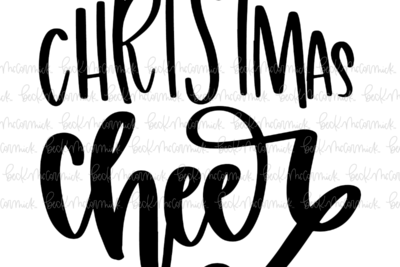 CHRISTMAS
cheer